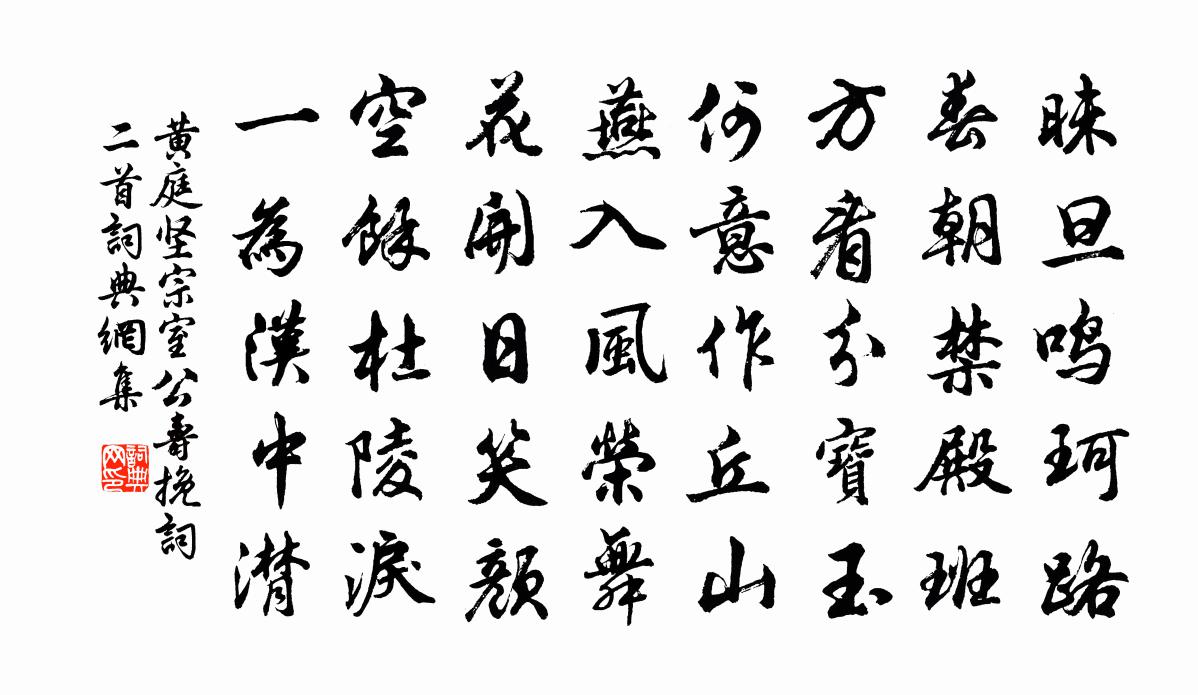 昧旦鸣珂路
春朝禁殿班
方看分寶玉
何意作丘山
燕入風榮舞
花開日笑顔
空餘杜陵淚
一為漢中潸
黃庭坚宗室公壽挽詞
二首詞典網集
詞典網印